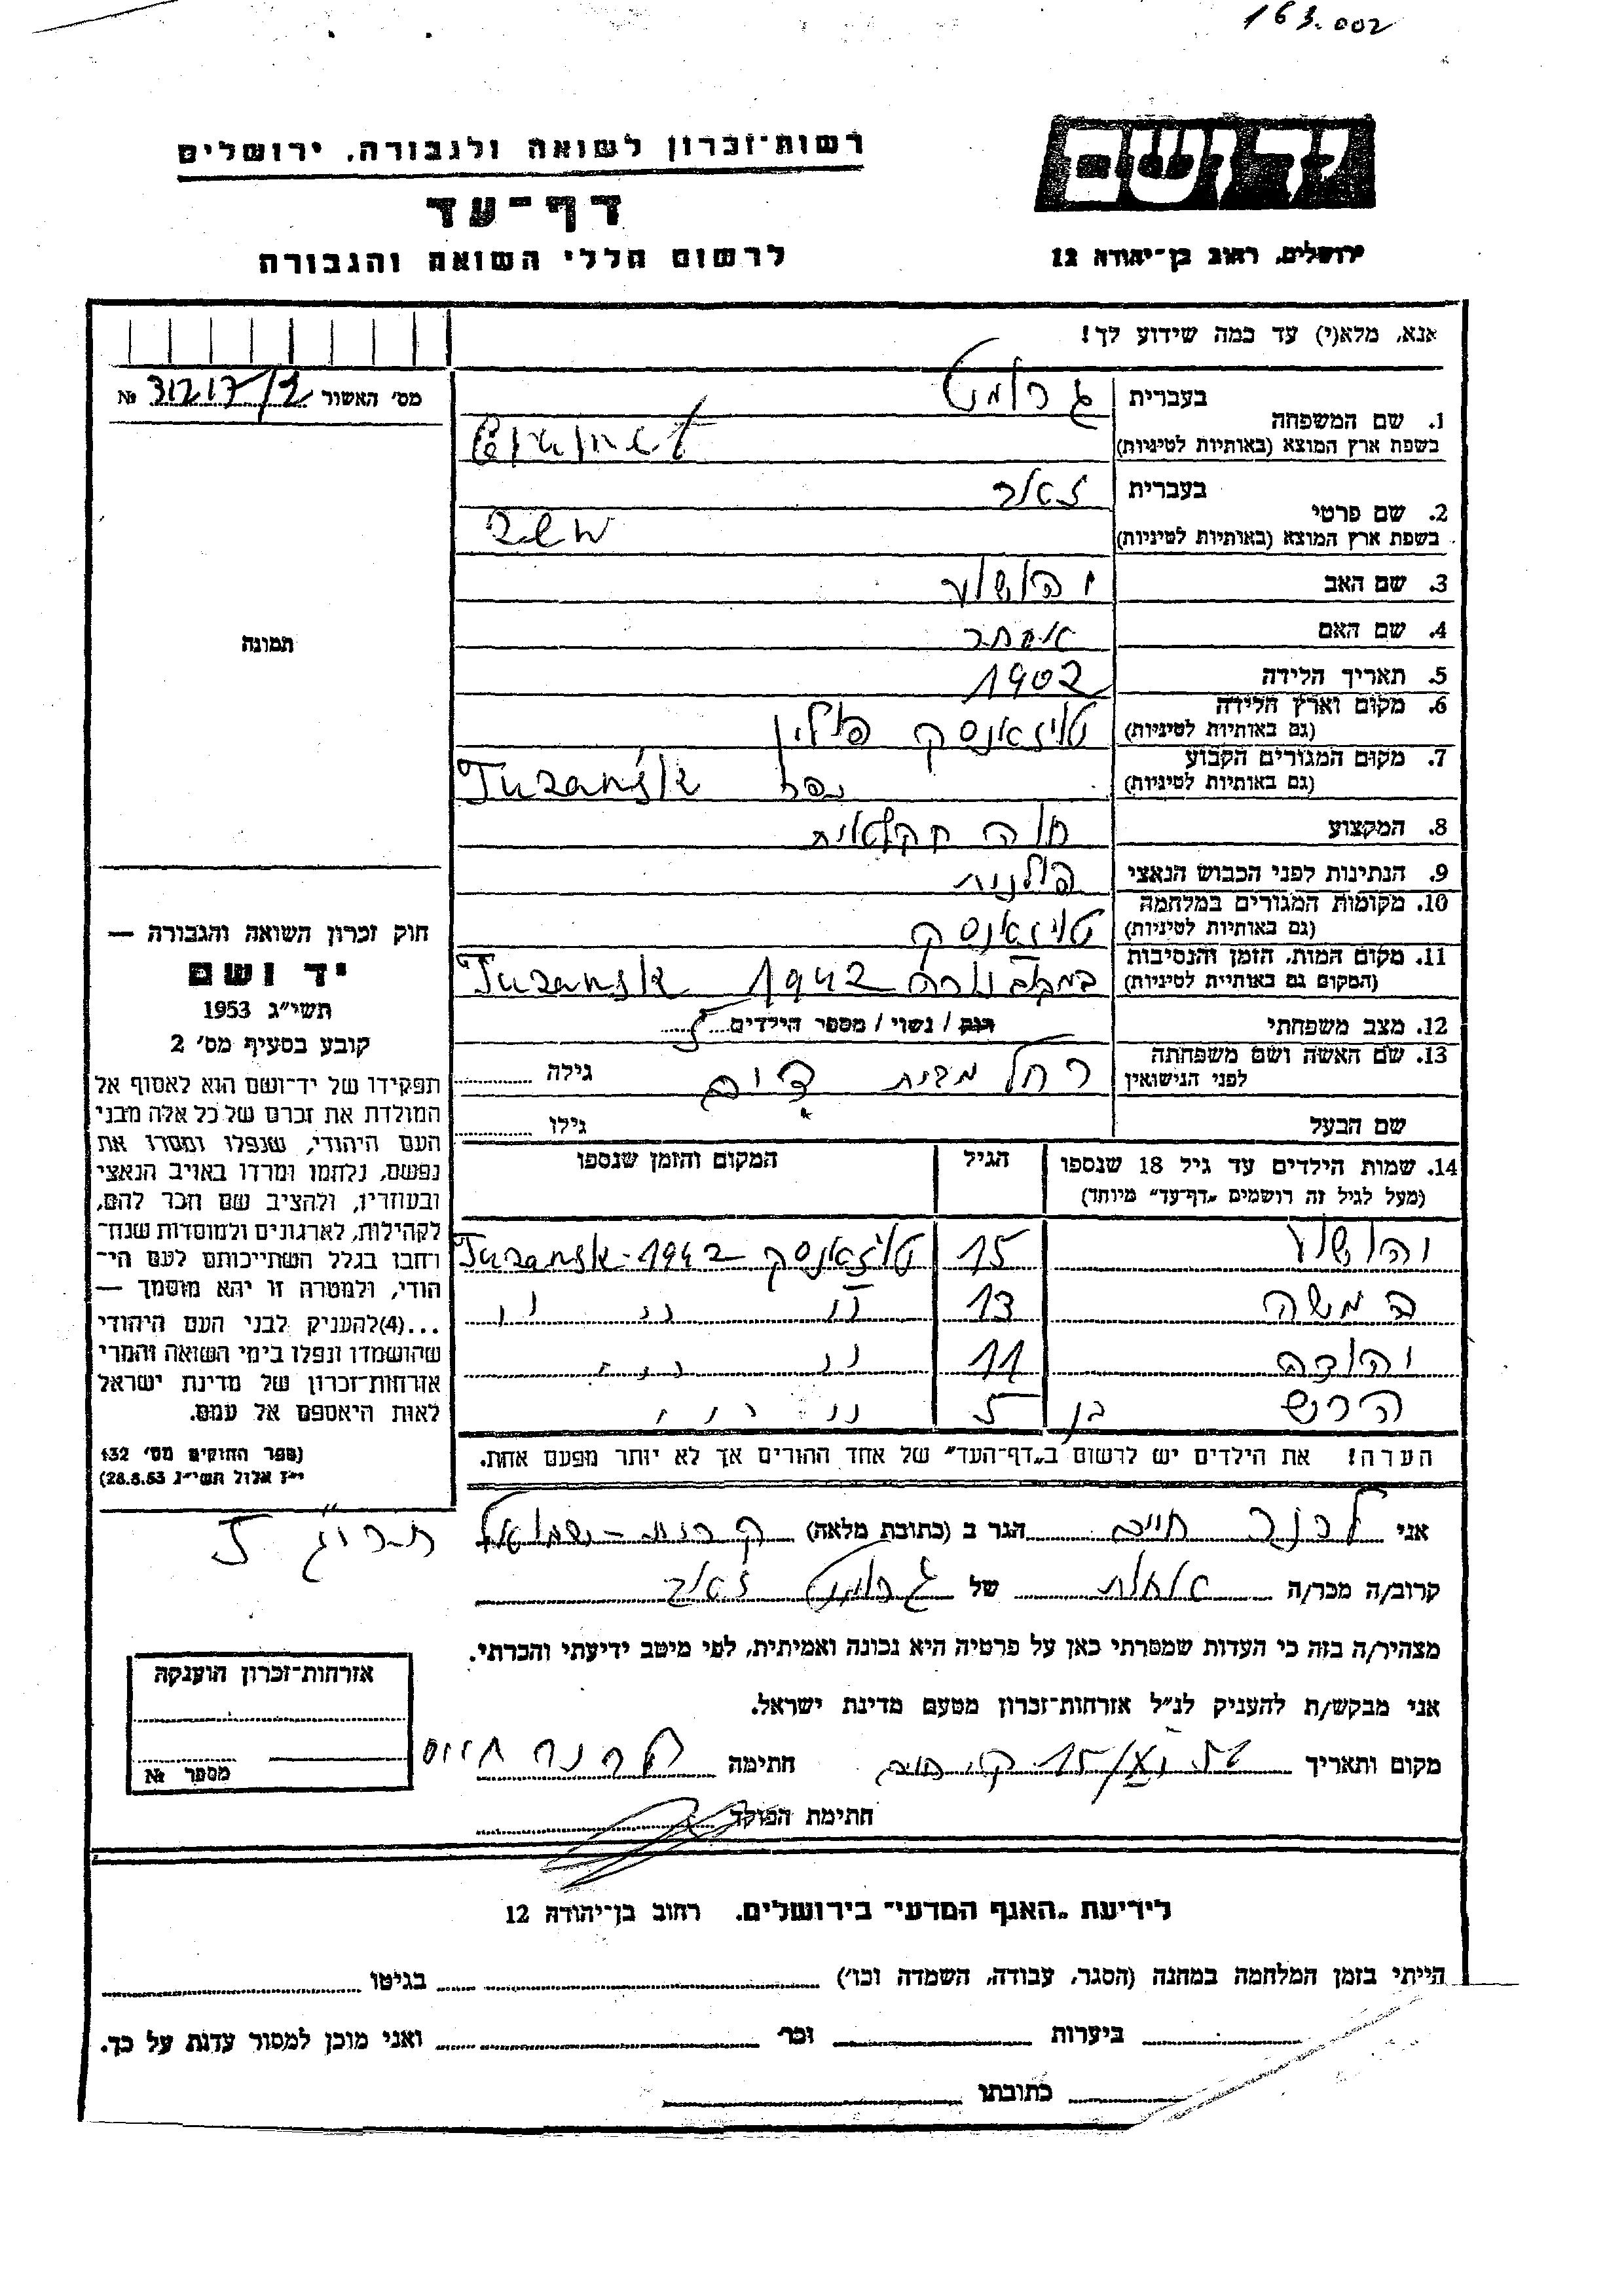 163.002
יד ושם
ירושלים, רחוב בן־יהודה 12
רשות־זכרון לשואה ולגבורה, ירושלים
דף־עד
לרשום חללי השואה והגבורה
אנא, מלא(י) עד כמה שידוע לך!
מס׳ האשור 31217/2 №
תמונה
1. שם המשפחה
בעברית
בשפת ארץ המוצא (באותיות לטיניות)
2. שם פרטי
בעברית זאב
בשפת ארץ המוצא (באותיות לטיניות)
3. שם האב יהושע
4. שם האם אסתר
5. תאריך הלידה 1902
6. מקום וארץ הלידה טוזאנסק פולין
(גם באותיות לטיניות)
7. מקום המגורים הקבוע Tuzańsk
(גם באותיות לטיניות)
8. המקצוע חקלאות
9. הנתינות לפני הכבוש הנאצי פולנית
10. מקומות המגורים במלחמה
(גם באותיות לטיניות)
11. מקום המות, הזמן והנסיבות 1942 Tuzansk
(המקום גם באותיית לטיניות)
12. מצב משפחתי רוק / נשוי / מספר הילדים 5
13. שם האשה ושם משפחתה רחל מבית
לפני הנישואין
גילה
שם הבעל
גילו
14. שמות הילדים עד גיל 18 שנספו
(מעל לגיל זה רושמים „דף־עד״ מיוחד)
הגיל
המקום והזמן שנספו
יהושע 15 1942 - Tuzansk
משה 13 " " "
יהודה 11 " " "
הרש בן 5 " " "
הערה! את הילדים יש לרשום ב„דף־העד״ של אחד ההורים אך לא יותר מפעם אחת.
חוק זכרון השואה והגבורה —
יד ושם
תשי״ג 1953
קובע בסעיף מס׳ 2
תפקידו של יד־ושם הוא לאסוף אל
המולדת את זכרם של כל אלה מבני
העם היהודי, שנפלו ומסרו את
נפשם, נלחמו ומרדו באויב הנאצי
ובעוזריו, ולהציב שם וזכר להם,
לקהילות, לארגונים ולמוסדות שנח־
רחבו בגלל השתייכותם לעם הי־
הודי, ולמטרה זו יהא מוסמך —
...(4)להעניק לבני העם היהודי
שהושמדו ונפלו בימי השואה והמרי
אזרחות־זכרון של מדינת ישראל
לאות היאספם אל עמם.
(ספר החוקים מס׳ 132
י״ז אלול תשי״ג 28.8.53)
אני לרנר חיים הגר ב (כתובת מלאה) קרית-שמואל
קרוב/ה מכר/ה של זאב
מצהיר/ה בזה כי העדות שמסרתי כאן על פרטיה היא נכונה ואמיתית, לפי מיטב ידיעתי והכרתי.
אני מבקש/ת להעניק לנ״ל אזרחות־זכרון מטעם מדינת ישראל.
מקום ותאריך חתימה לרנר חיים
חתימת הפוקד
אזרחות־זכרון הוענקה
מספר №
לידיעת „האגף המדעי״ בירושלים, רחוב בן־יהודה 12
הייתי בזמן המלחמה במחנה (הסגר, עבודה, השמדה וכו׳) בגיטו
ביערות וכר ואני מוכן למסור עדות על כך.
כתובתו